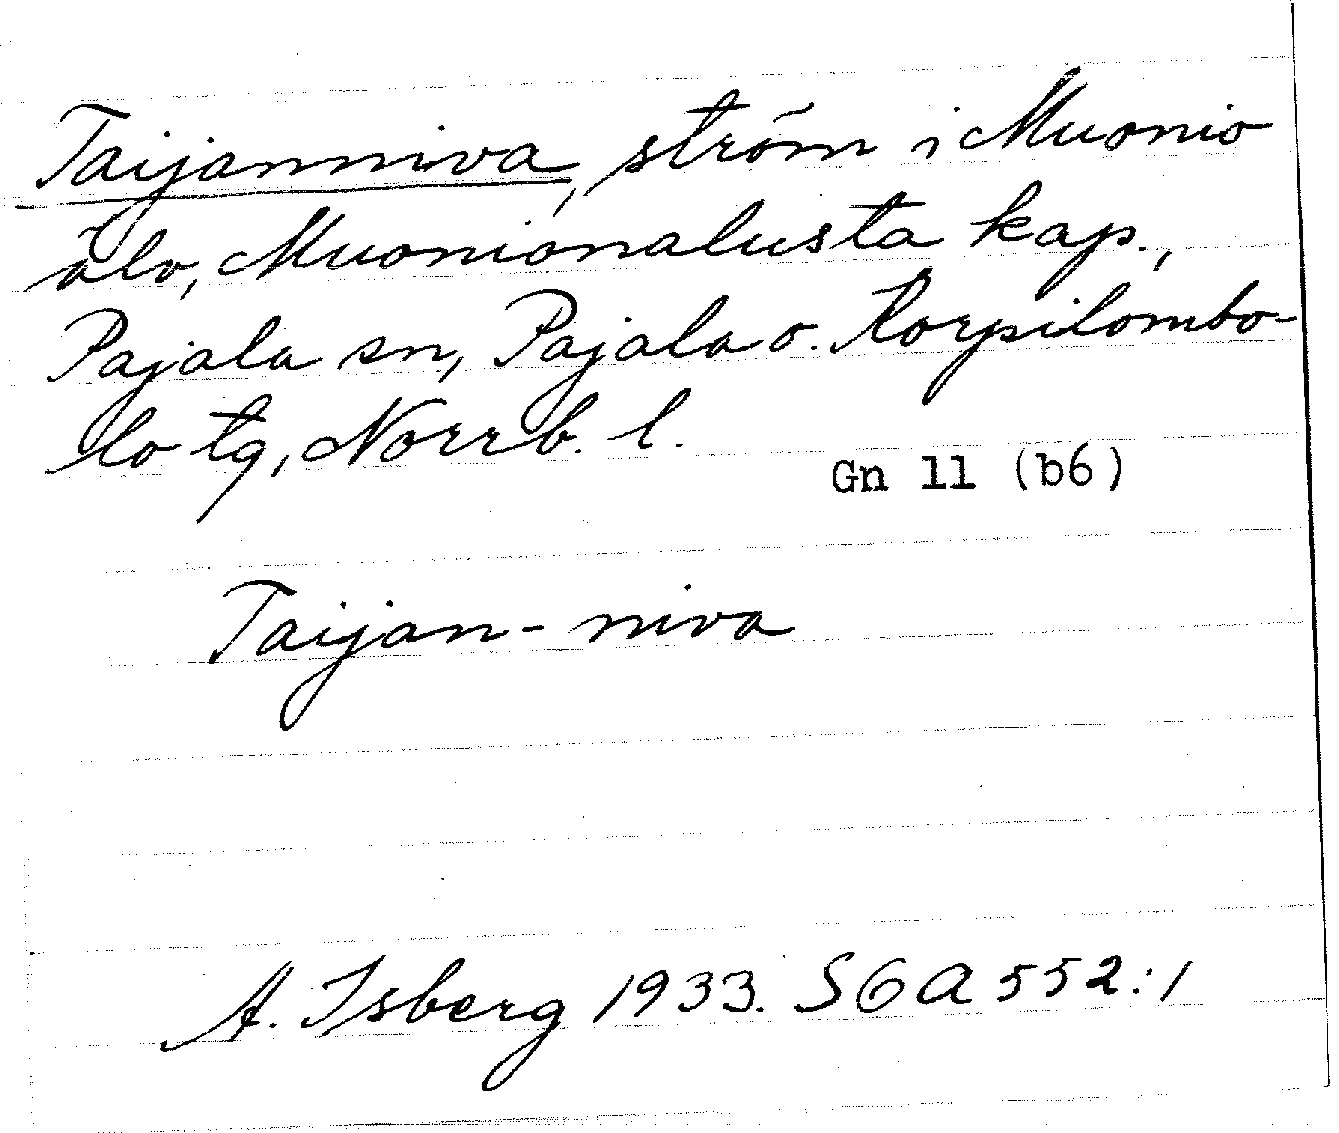 Taijanniva, ström i Muonio
älv, Muonionalusta kap.,
Pajala sn, Pajala o. Korpilombo-
lo tg, Norrb. l.
Gn 11 (b6)
Taijan-niva
A. Isberg 1933. SGA 552:1